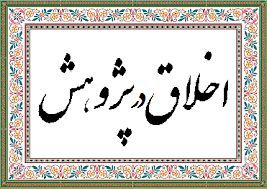 اخلاق در پژوهش